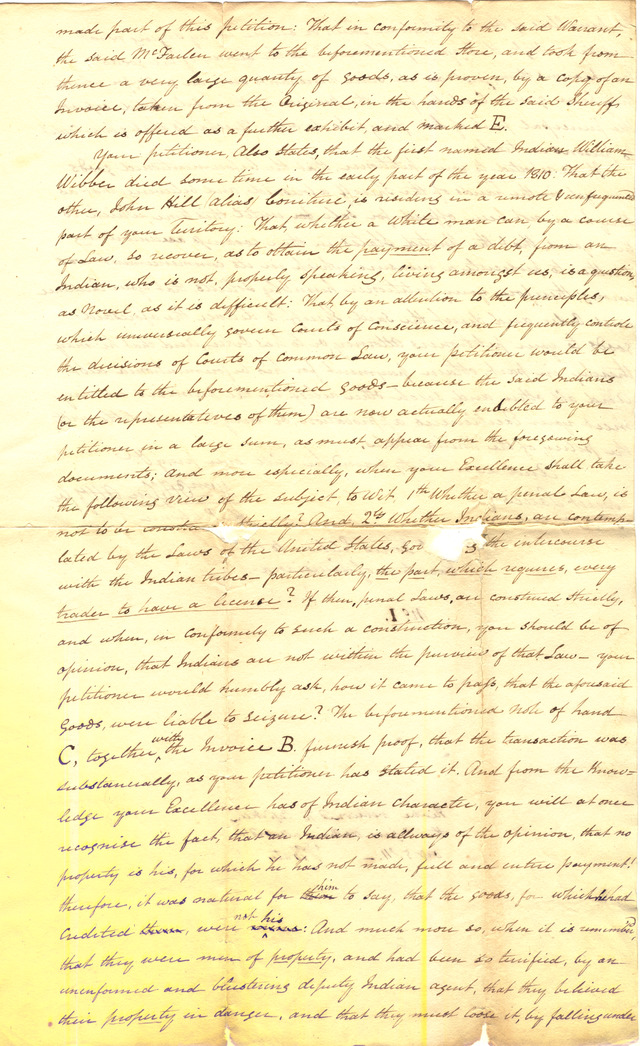 made part of this petition: That in conformity to the said Warrant,
the said McFarlen went to the beforementioned Store, and took from
thence a very large quantity of goods, as is proven, by a copy of an
Invoice, taken from the Original, in the hands of the said Sheriff
which is offered as a further exhibit, and marked E.
Your petitioner, Also States, that the first named Indian William
Wibber died some time in the early part of the year 1810: That the
other, John Hill alias Conitue, is residing in a remote & unfrequented
part of your Territory: That, whether a White man can by a course
of Law, so recover, as to obtain the payment of a debt, from an
Indian, who is not, properly speaking, living amongst us, is a question,
as Novel, as it is difficult: That by an attention to the principles,
which universically govern Courts of Conscience, and frequently controle
the decisions of Courts of Common Law, your petitioner would be
entitled to the beforementioned goods – because the said Indians
(or the representatives of them) are now actually endebted to your
petitioner in a large sum, as must appear from the foregoing
documents; And more especially, when your Excellence shall take
the following view of the subject, to Wit, 1th Whether a penal Law, is
not to be strictly? And, 2dly Whether Indians, are contemp-
lated by the Laws of the United States, the intercourse
with the Indian tribes – particulaily, the part, which requires, every
trader to have a license? If then, penal Laws, are construed strictly,
and when, in conformity to such a construction, you should be of
opinion, that Indians are not within the purview of that Law – your
petitioner would humbly ask, how it came to pass, that the aforesaid
Goods, were liable to seizure? The beforementioned Note of hand
C, together with the Invoice B. furnish proof, that the transaction was
substancially, as your petitioner has stated it. And from the Know-
ledge your Excellence has of Indian Character, you will at once
recognise the fact, that an Indian, is allways of the opinion, that no
property is his, for which he has not made, full and entire payment!
therefore, it was natural for them him to say, that the goods, for which he had
credited, were not his: And much more so, when it is remember'd,
that they were men of property, and had been so terrified, by an
uninformed and blustering deputy Indian agent, that they believed
their property in danger, and that they must loose it, by falling under